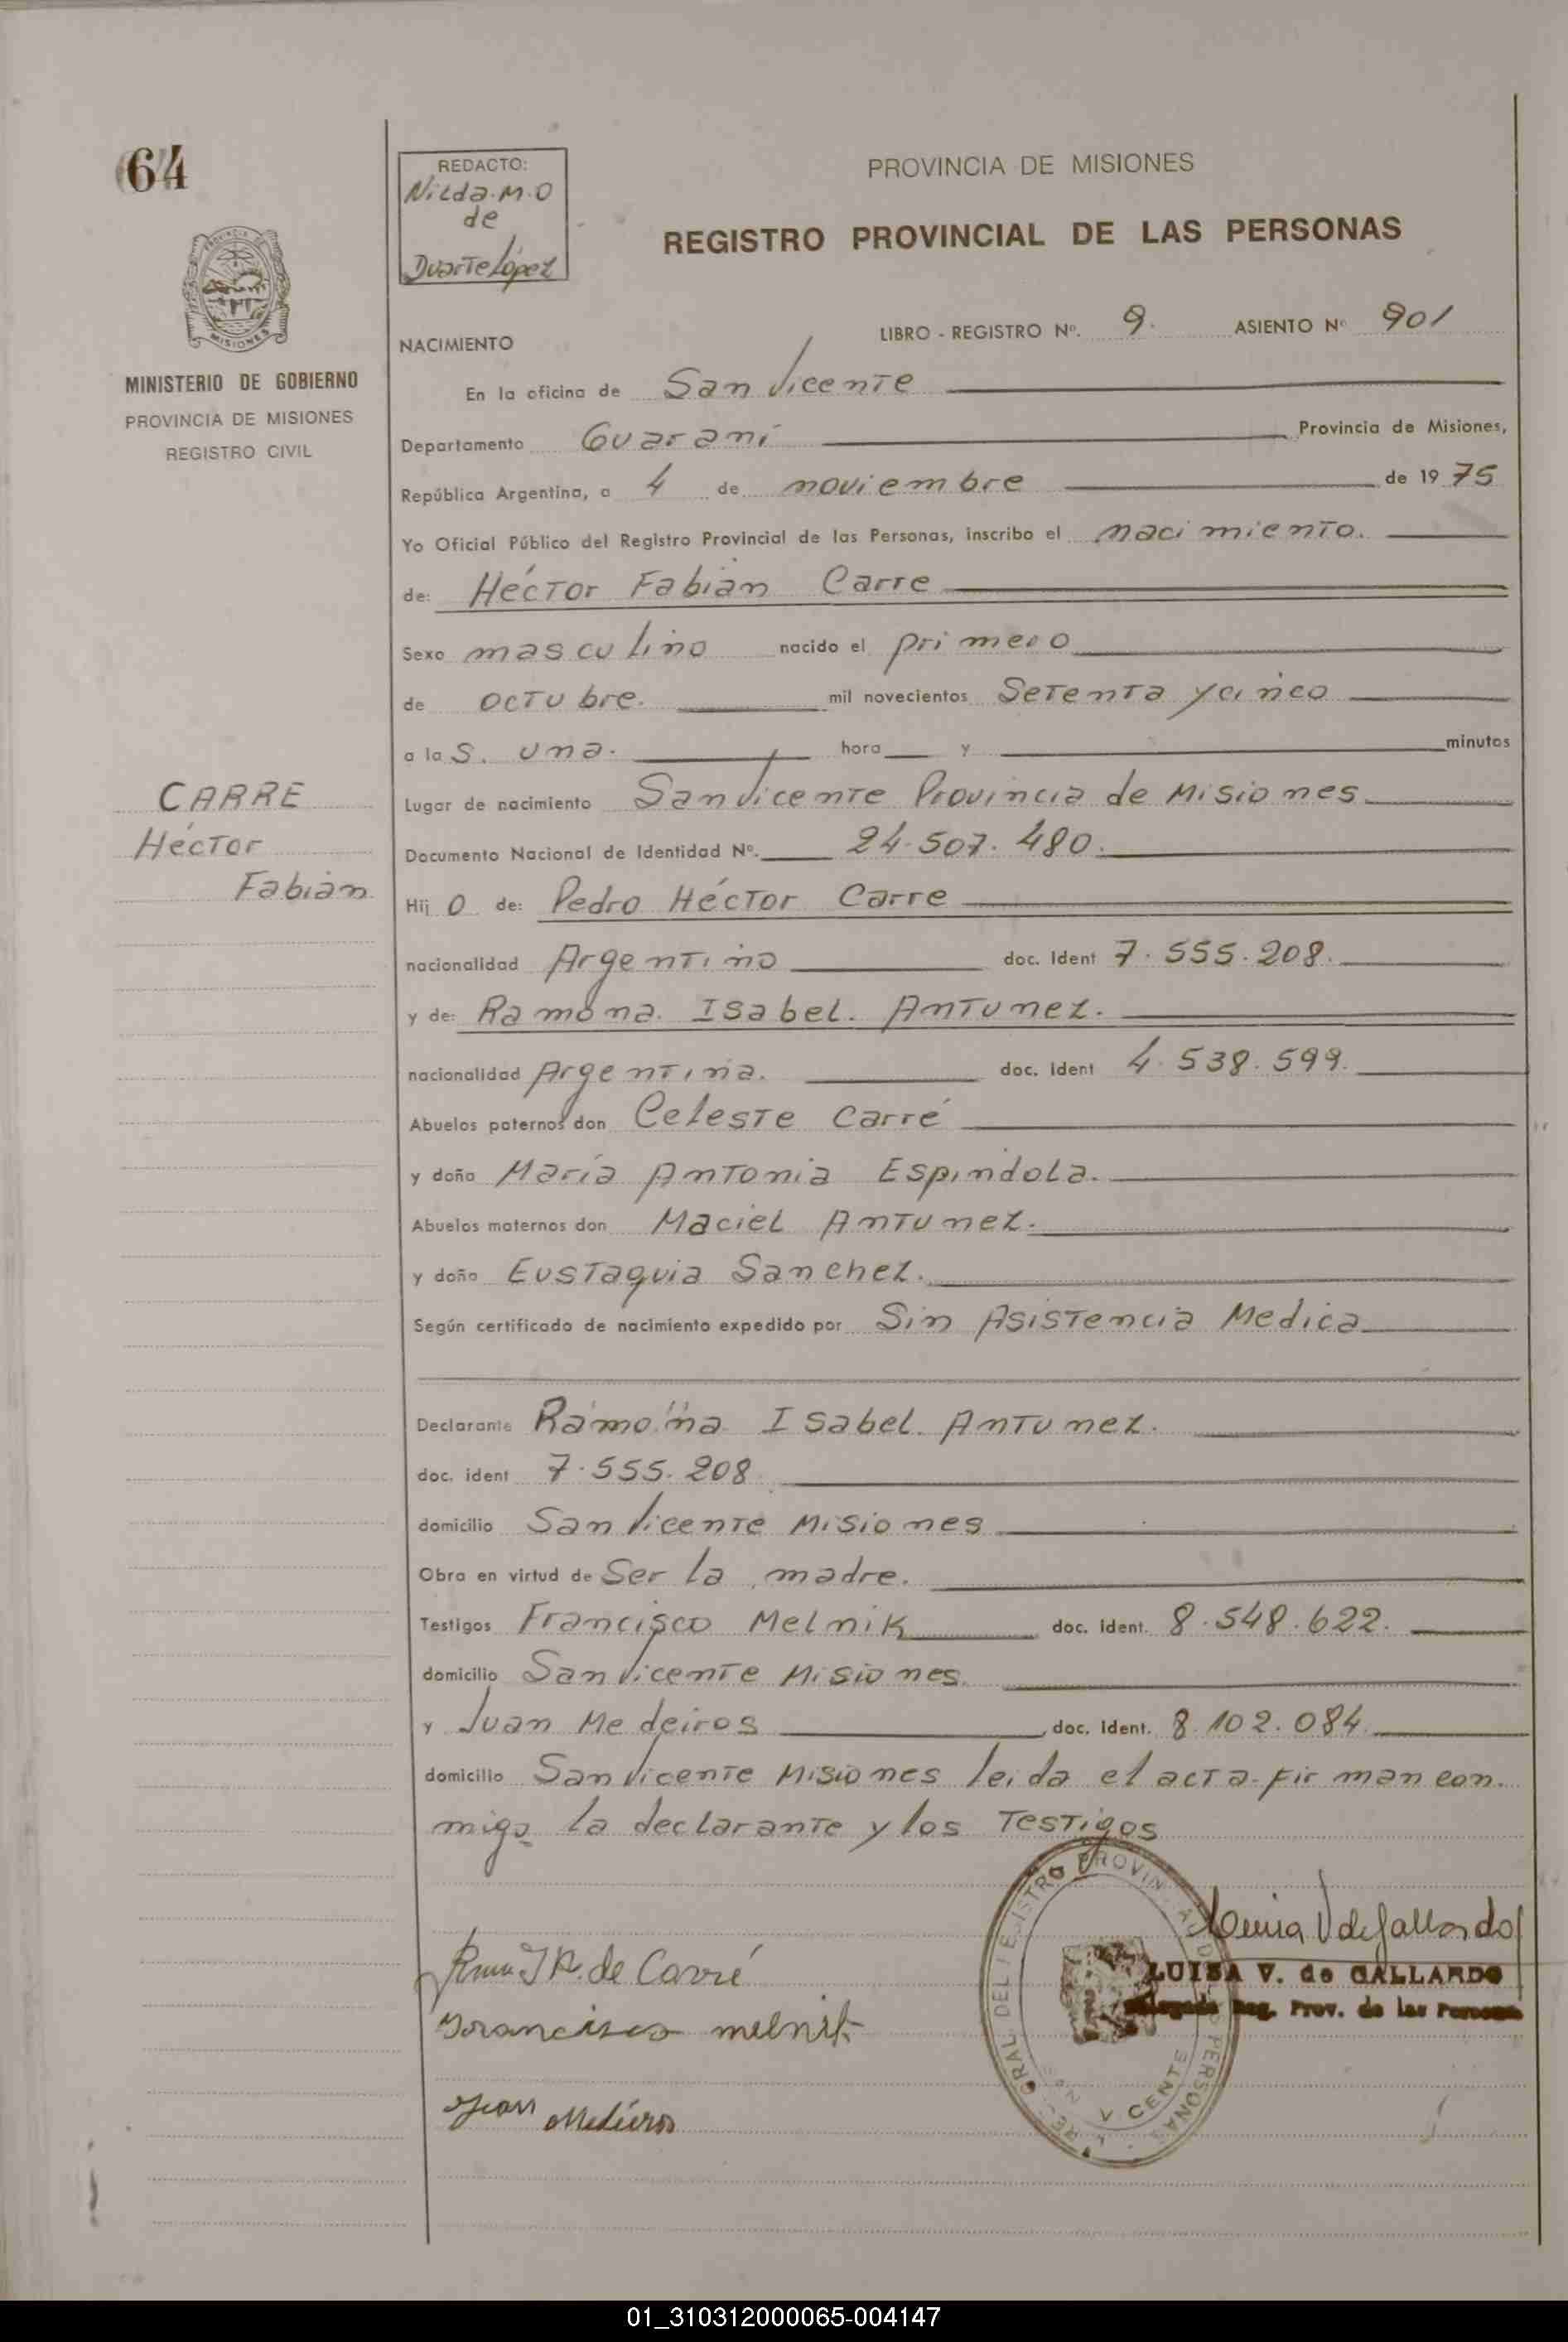 64
REDACTO:
Nilda.M.O
de
Duarte López
PROVINCIA DE MISIONES
REGISTRO PROVINCIAL DE LAS PERSONAS
MISIONES
MINISTERIO DE GOBIERNO
PROVINCIA DE MISIONES
REGISTRO CIVIL
LIBRO - REGISTRO Nº. 9. ASIENTO Nº 901
NACIMIENTO
En la oficina de San Vicente
Departamento Guaraní Provincia de Misiones,
República Argentina, a 4 de noviembre de 1975
Yo Oficial Público del Registro Provincial de las Personas, inscribo el nacimiento.
de: Héctor Fabián Carre
Sexo masculino nacido el primero
de octubre. mil novecientos Setenta y cinco
a las. una. hora y minutos
Lugar de nacimiento San Vicente Provincia de Misiones
Documento Nacional de Identidad Nº. 24.507.480.
CARRE
Héctor
Fabián
Hijo de: Pedro Héctor Carre
nacionalidad Argentino doc. Ident 7.555.208.
y de: Ramona. Isabel. Antunez.
nacionalidad Argentina. doc. Ident 4.538.599.
Abuelos paternos don Celeste Carré
y doña María Antonia Espíndola.
Abuelos maternos don Maciel Antunez.
y doña Eustaquia Sanchez.
Según certificado de nacimiento expedido por Sin Asistencia Medica
Declarante Ramona Isabel. Antunez.
doc. ident 7.555.208
domicilio San Vicente Misiones
Obra en virtud de Ser la madre.
Testigos Francisco Melnik doc. Ident. 8.548.622.
domicilio San Vicente Misiones.
y Juan Medeiros doc. Ident. 8.102.084.
domicilio San Vicente Misiones leida el acta firman con.
migo la declarante y los Testigos
de Carré
Francisco melnik
Juan Medeiros
V de Gallardo
LUISA V. de GALLARDO
Delegada Reg. Prov. de las Personas
01_310312000065-004147